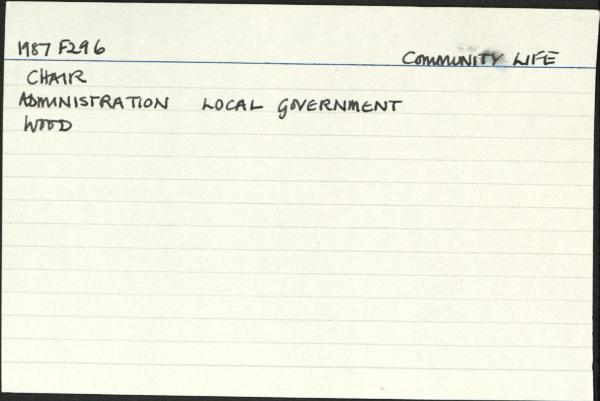 1987 F296 COMMUNITY LIFE
CHAIR
ADMINISTRATION LOCAL GOVERNMENT
WOOD